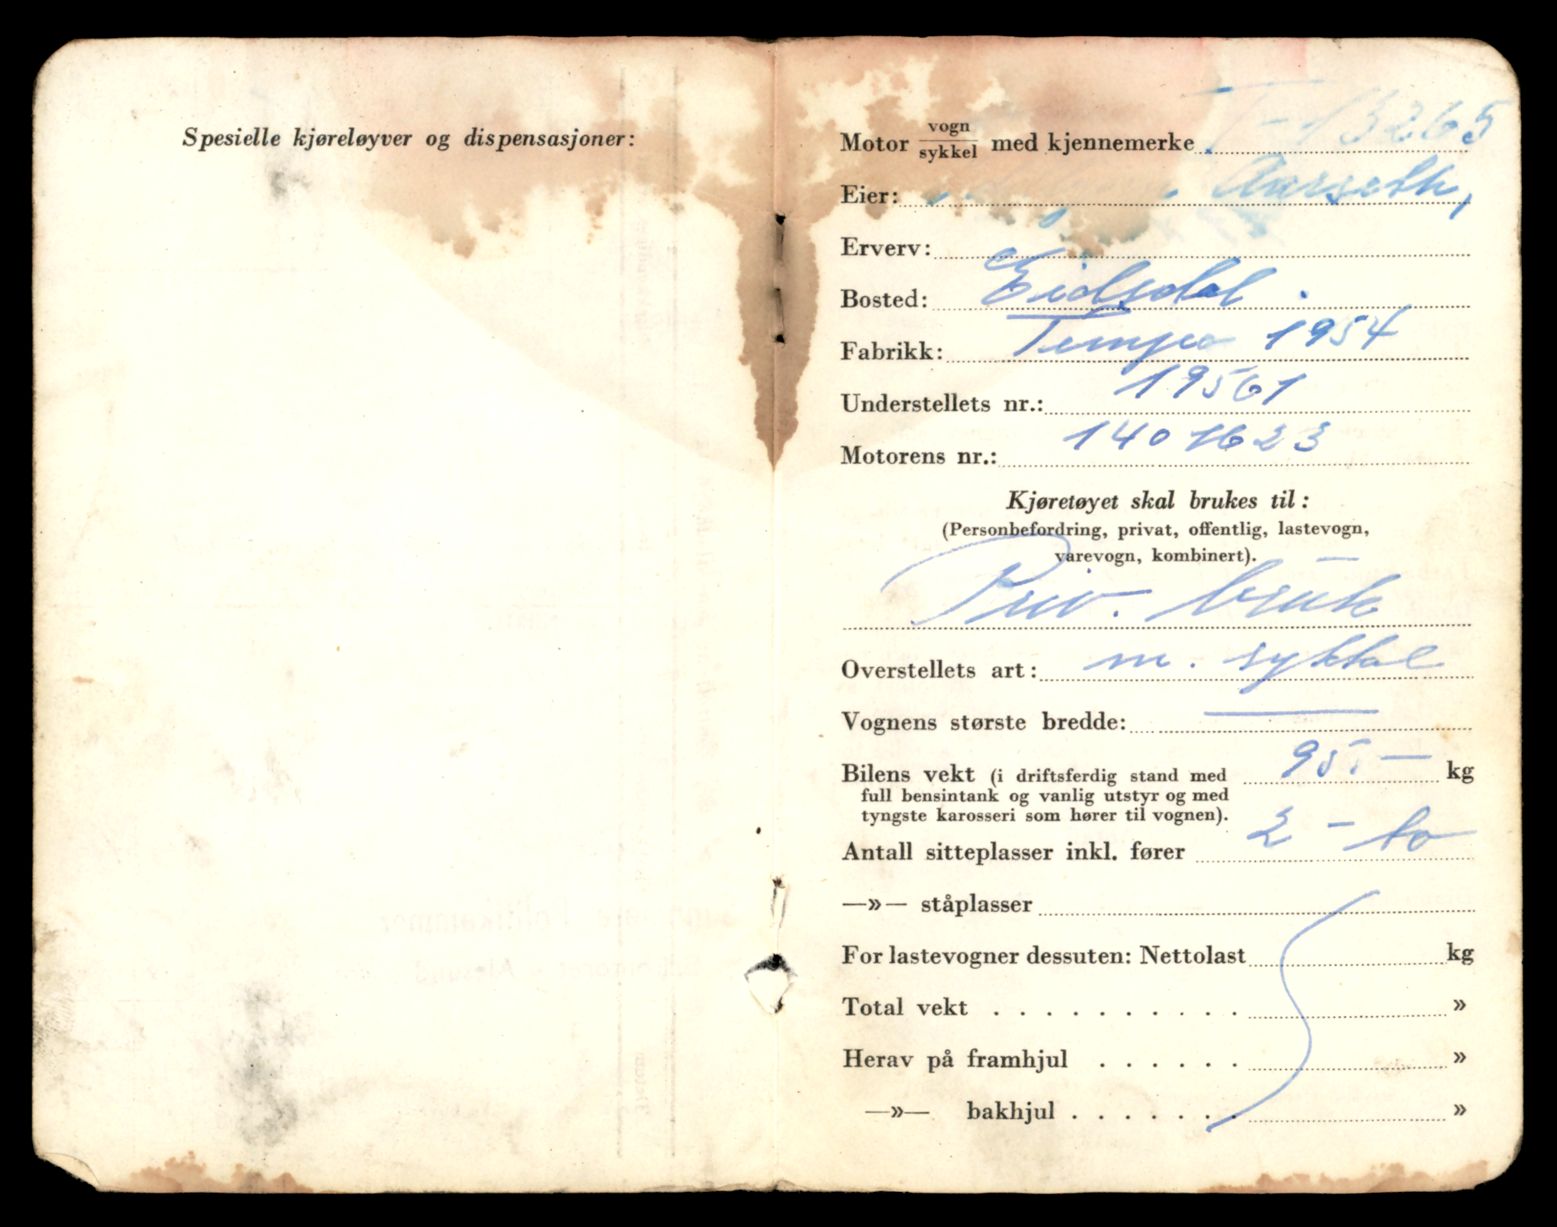 Spesielle kjøreløyver og dispensasjoner:
Motor vogn/sykkel med kjennemerke T-13265
Eier: Aarseth,
Erverv:
Bosted: Eidsdal.
Fabrikk: Tempo 1954
Understellets nr.: 19561
Motorens nr.: 1401623
Kjøretøyet skal brukes til:
(Personbefordring, privat, offentlig, lastevogn,
varevogn, kombinert).
Priv. bruk
Overstellets art: m. sykkel
Vognens største bredde: —
Bilens vekt (i driftsferdig stand med 95.— kg
full bensintank og vanlig utstyr og med
tyngste karosseri som hører til vognen).
Antall sitteplasser inkl. fører 2 - to
—»— ståplasser
For lastevogner dessuten: Nettolast kg
Total vekt . . . . . . . . . . »
Herav på framhjul . . . . . . »
—»— bakhjul . . . . . . . »